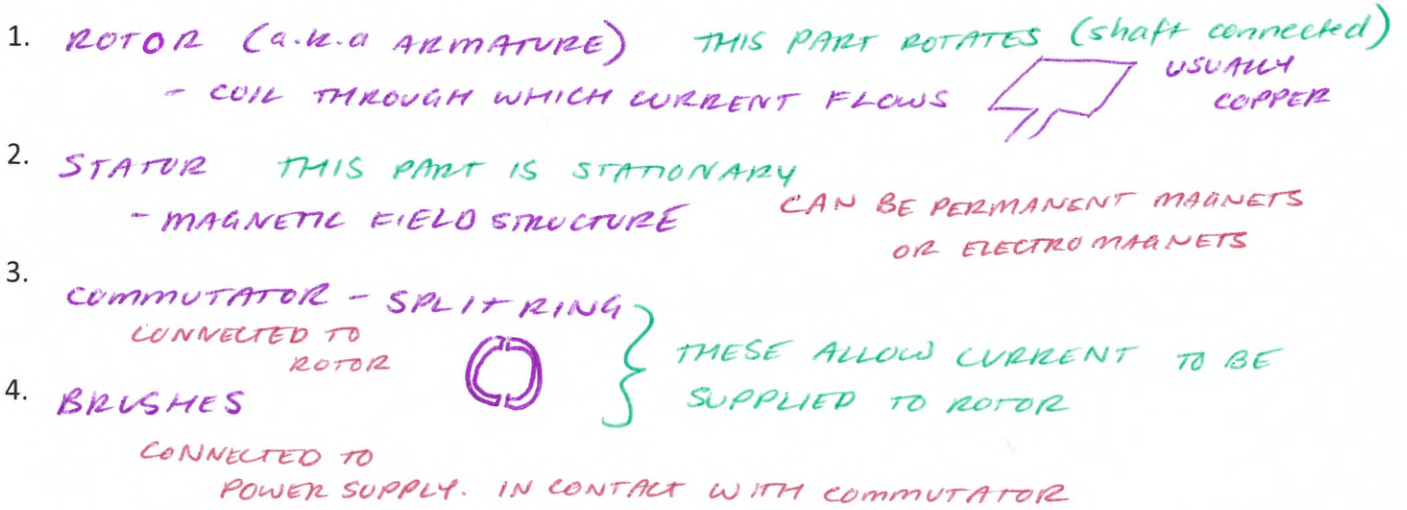 1. ROTOR (a.k.a ARMATURE) THIS PART ROTATES (shaft connected)
- COIL THROUGH WHICH CURRENT FLOWS USUALLY COPPER
2. STATOR THIS PART IS STATIONARY
- MAGNETIC FIELD STRUCTURE CAN BE PERMANENT MAGNETS
OR ELECTROMAGNETS
3. COMMUTATOR - SPLIT RING
CONNECTED TO
ROTOR
THESE ALLOW CURRENT TO BE
SUPPLIED TO ROTOR
4. BRUSHES
CONNECTED TO
POWER SUPPLY. IN CONTACT WITH COMMUTATOR